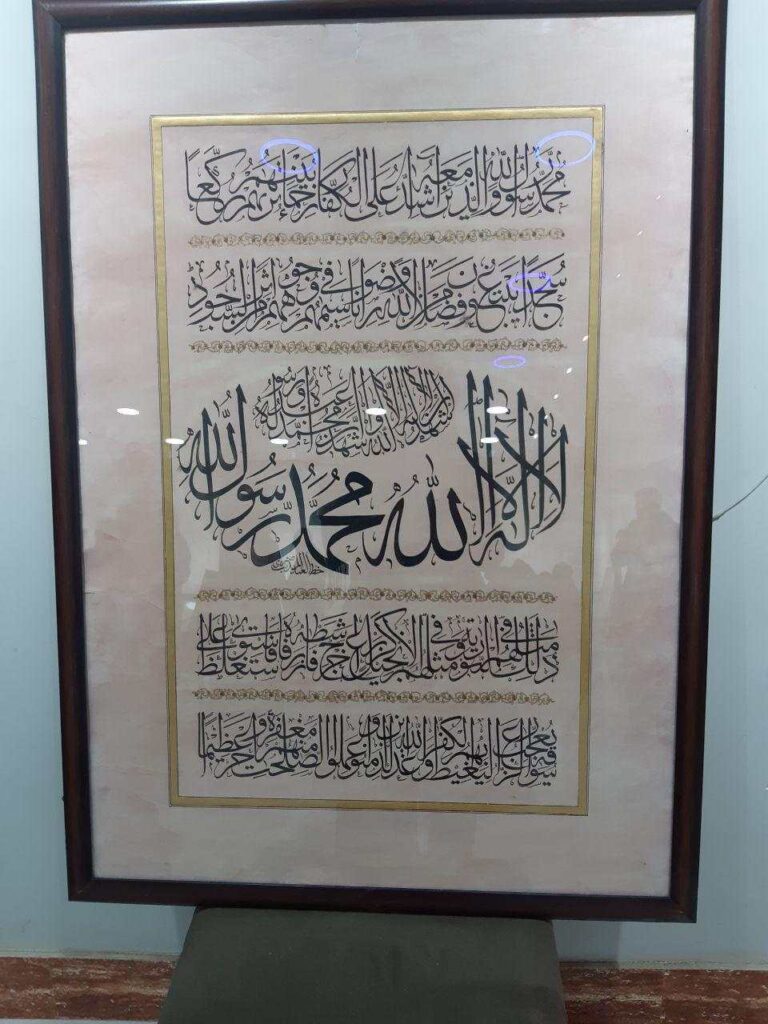 محمد رسول الله والذين معه أشداء على الكفار رحماء بينهم تريهم ركعا
سجدا يبتغون فضلا من الله ورضوانا سيماهم في وجوههم من أثر السجود
أشهد أن لا إله إلا الله وأشهد أن محمدا عبده ورسوله
لا إله إلا الله محمد رسول الله
خط العبد
ذلك مثلهم في التورية ومثلهم في الإنجيل كزرع أخرج شطئه فآزره فاستغلظ فاستوى على
سوقه يعجب الزراع ليغيظ بهم الكفار وعد الله الذين آمنوا وعملوا الصلحت منهم مغفرة وأجرا عظيما